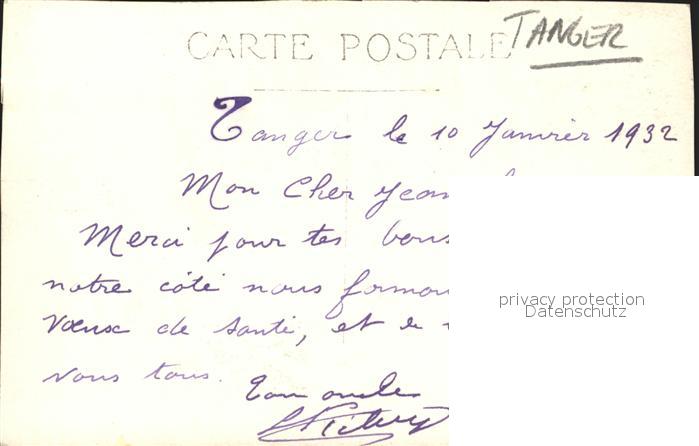 CARTE POSTALE TANGER
Tanger le 10 Janvier 1932
Mon Cher Jean
Merci pour tes bons
notre côté nous
privacy protection
Datenschutz
Vœux de santé, et
vous tous.
Ton oncle